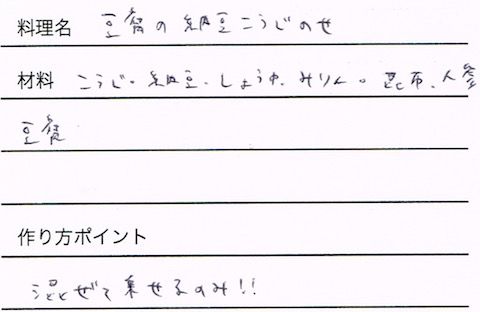 料理名 豆腐の納豆こうじのせ
材料 こうじ・納豆・しょうゆ・みりん・昆布、人参
豆腐
作り方ポイント
混ぜて乗せるのみ!!